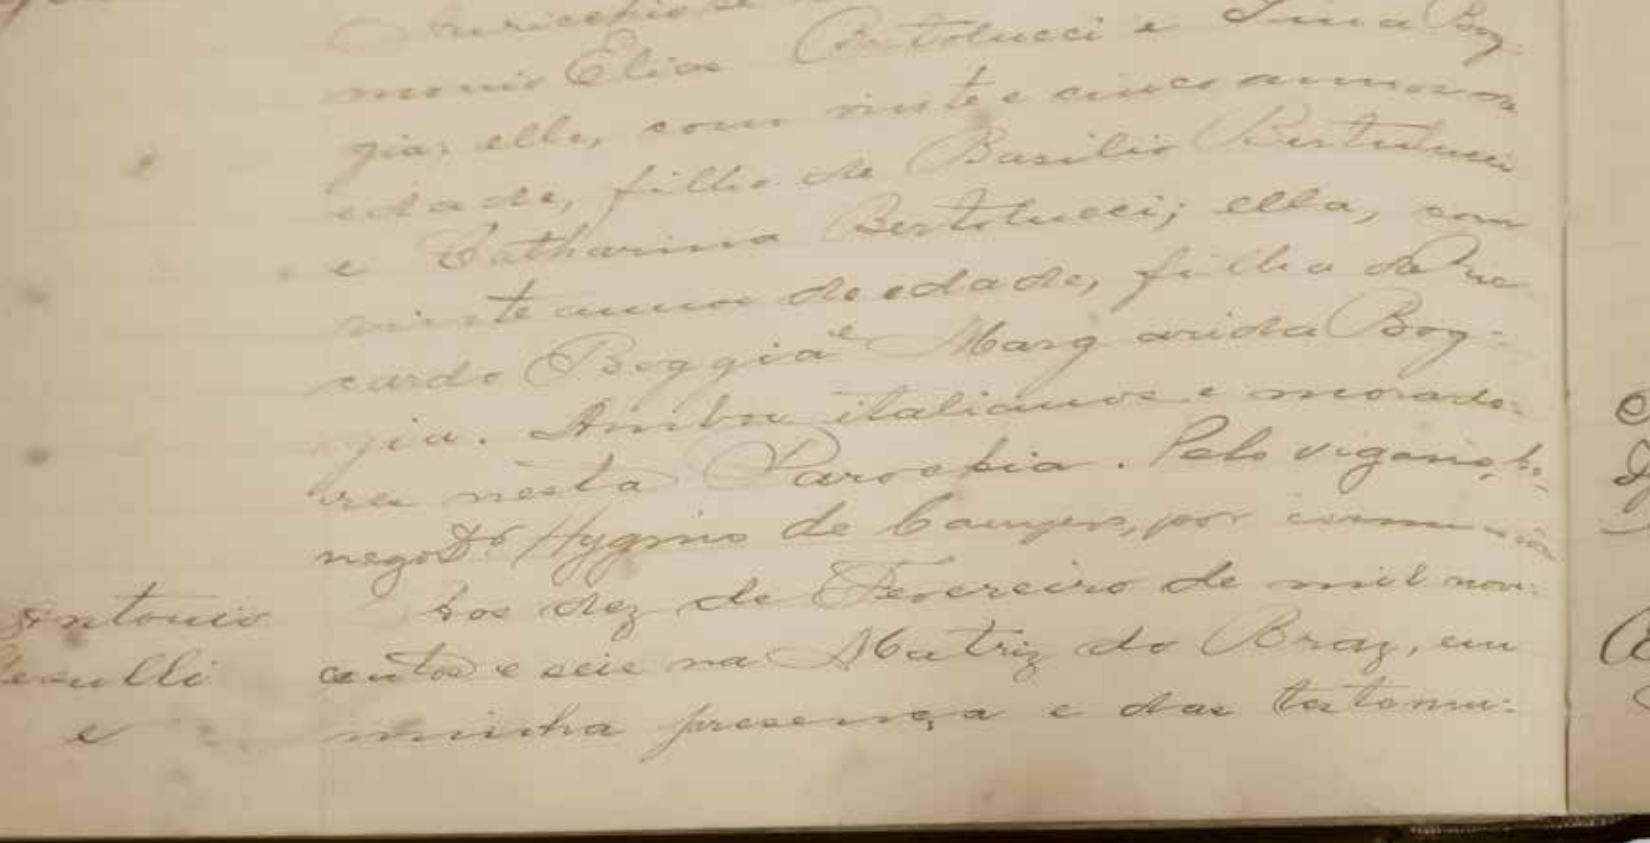 monio Elias Bertolucci e Bog-
gia; elle, com vinte e cinco annos de
edade, filho de Basilio Bertolucci
e Catharina Bertolucci; ella, com
vinte annos de edade, filha de Ric
cardo Boggia e Margarida Bog-
gia. Ambos italianos e morado-
res nesta Parochia. Pelo vigario,
nego Dr Hygino de Campos, por commissão
Antonio
Aos dez de Fevereiro de mil nove-
centos e seis na Matriz do Braz, em
e
minha presença e das testemu-